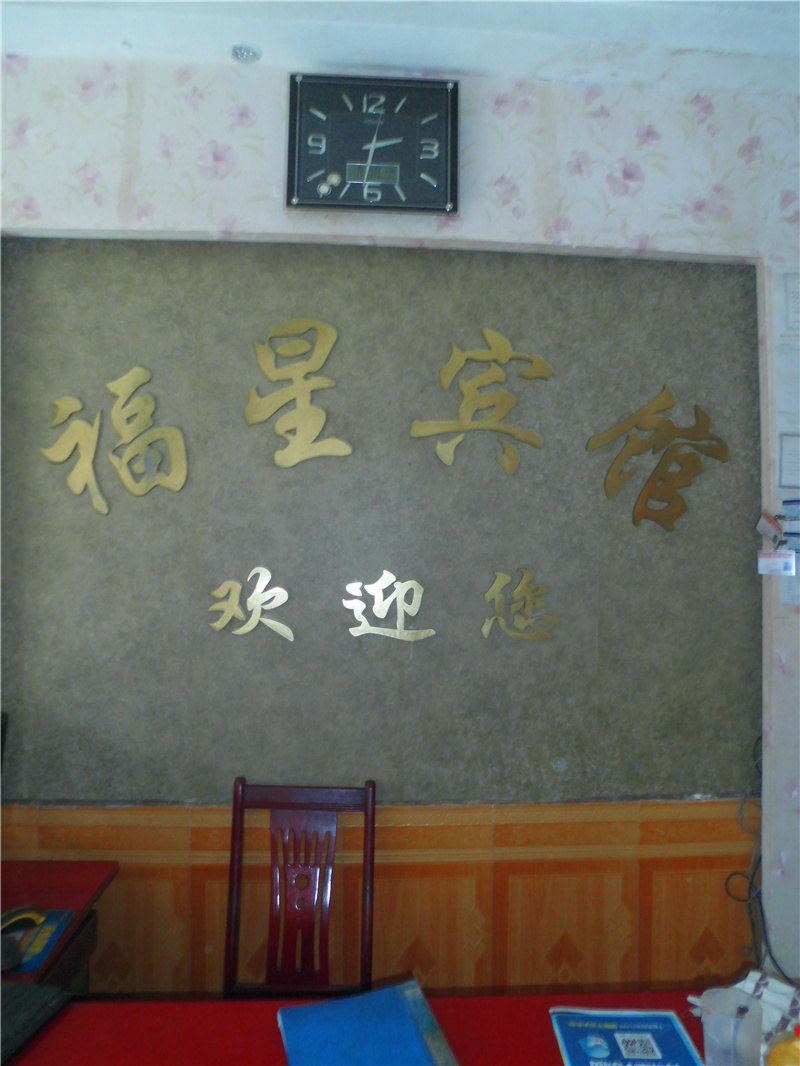 12
9
3
6
福星宾馆
欢迎您